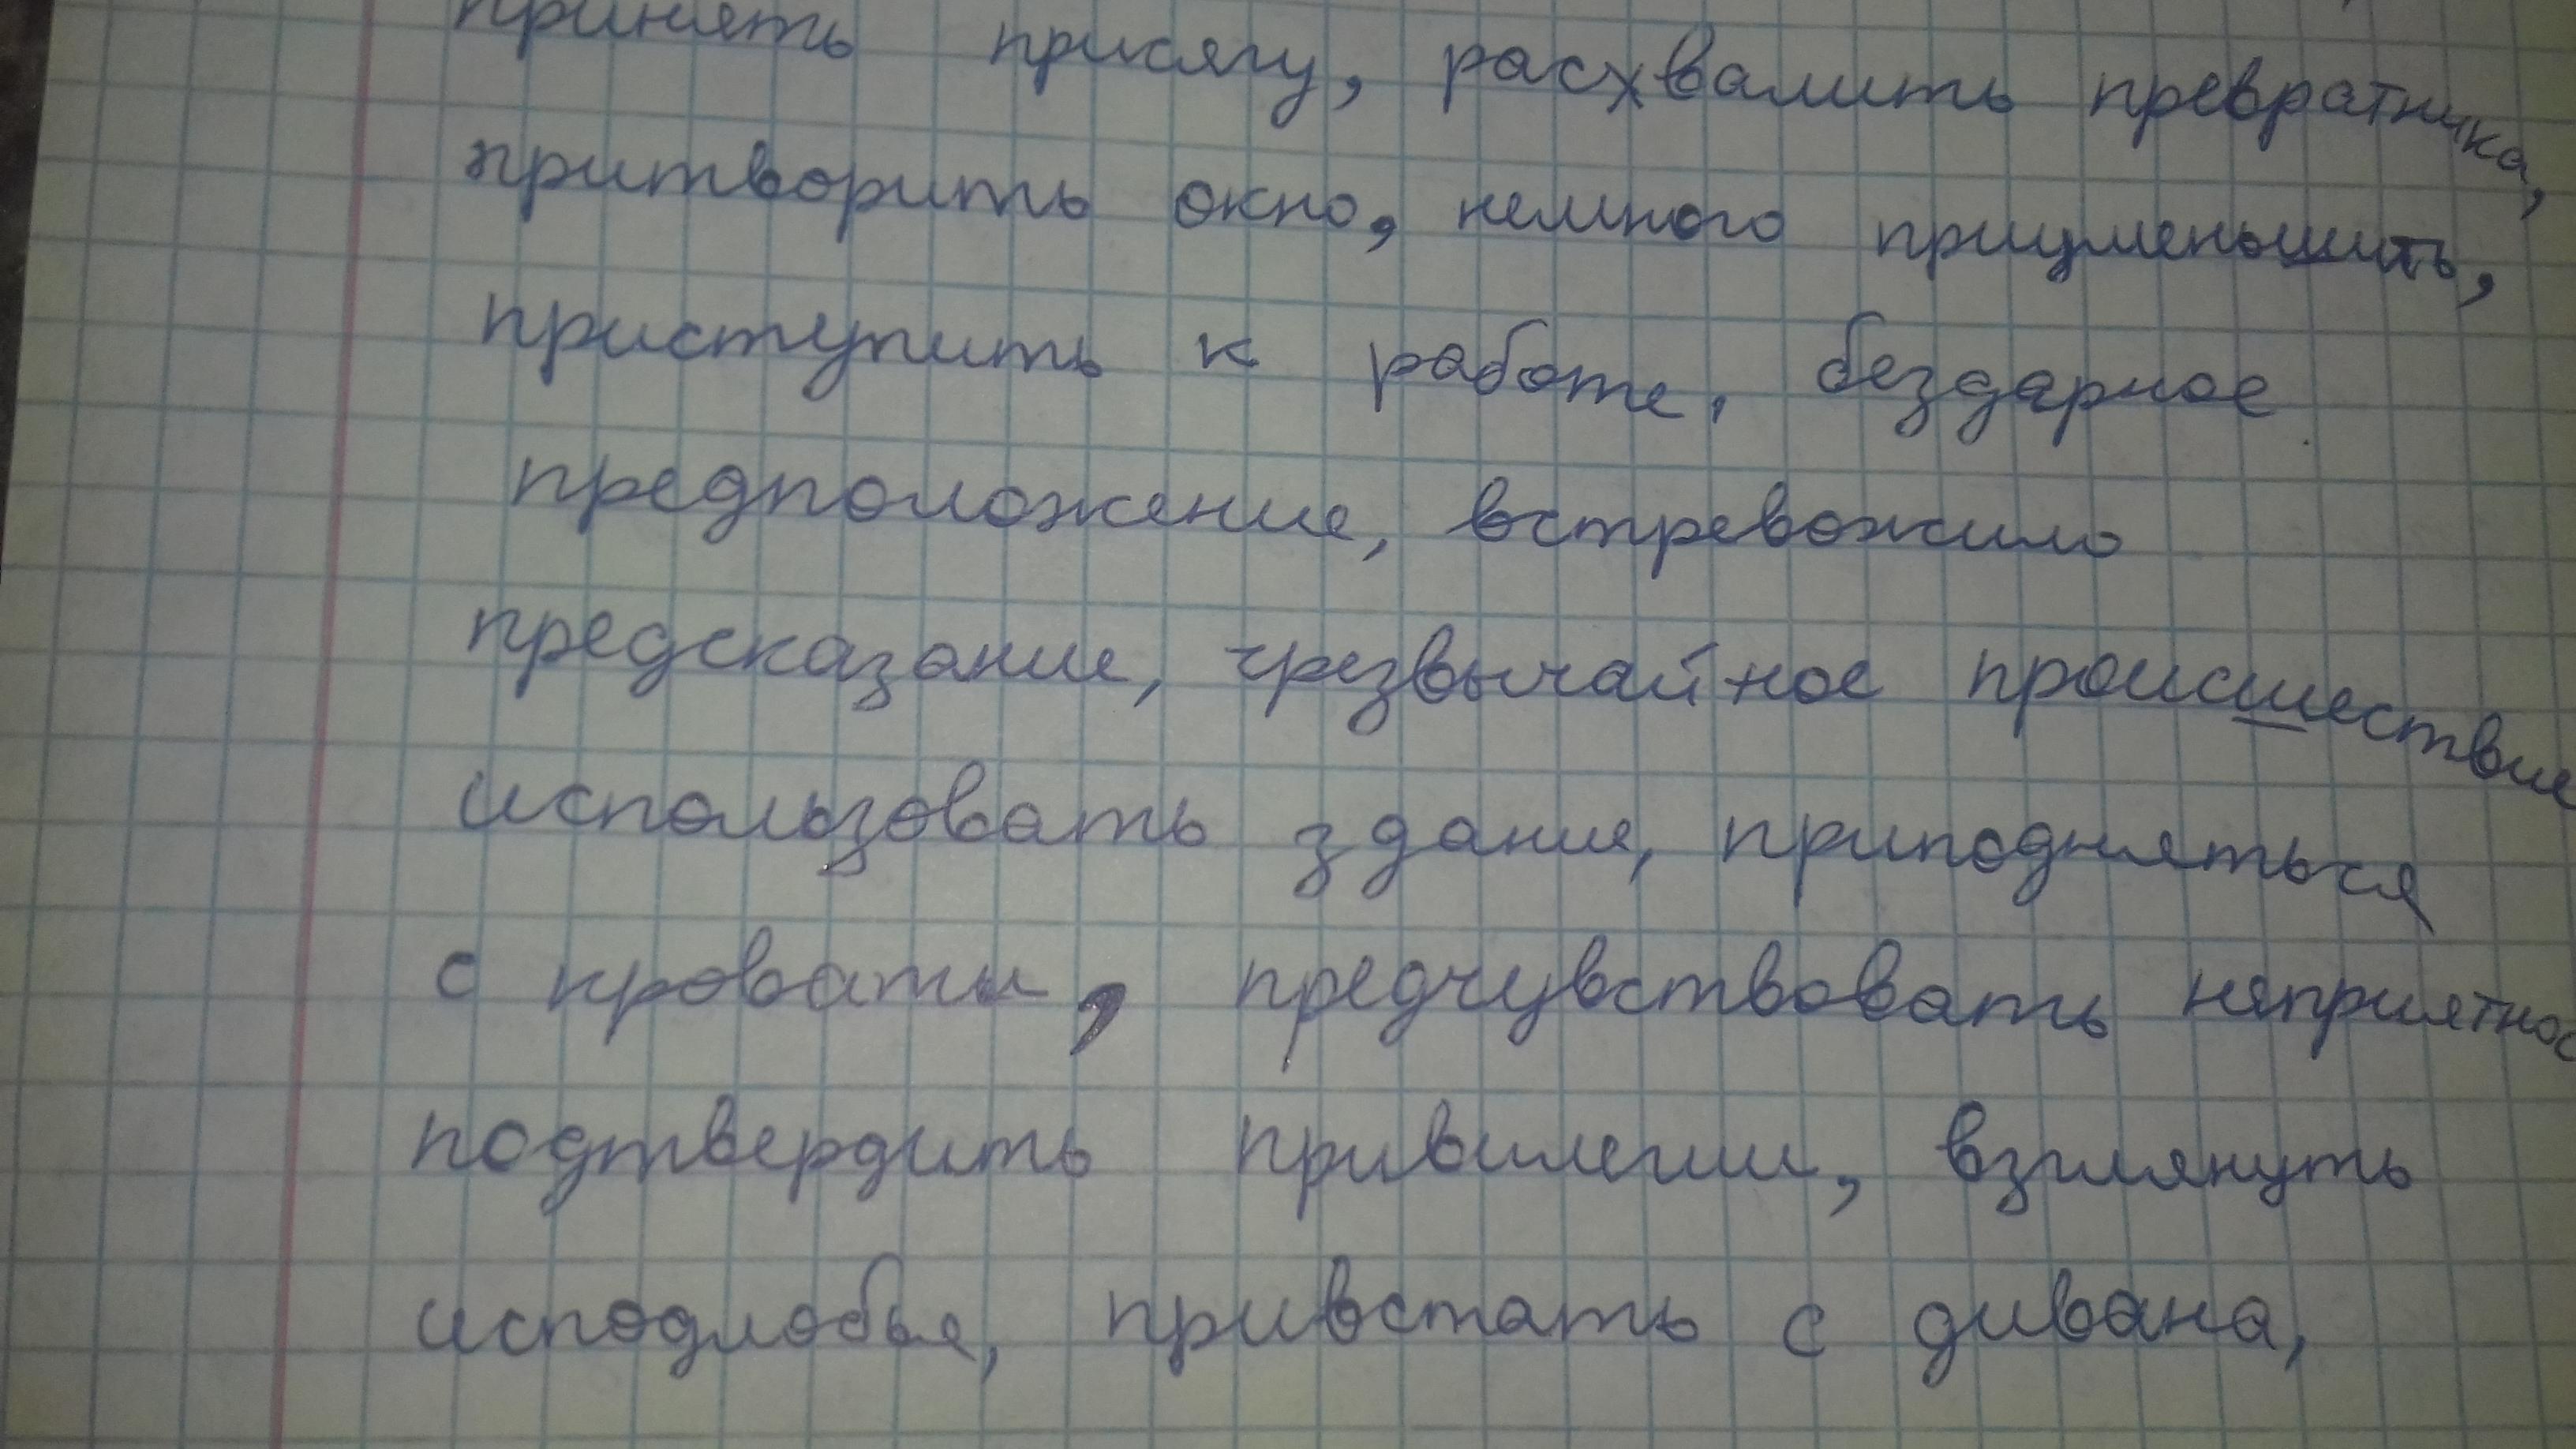 принять присягу, расхвалить превратника,
притворить окно, немного приуменьшить,
приступить к работе, бездарное
предположение, встревожило
предсказание, чрезвычайное происшествие
использовать здание, приподняться
с кровати, предчувствовать неприятнос
подтвердить привилегии, взглянуть
исподлобья, привстать с дивана,